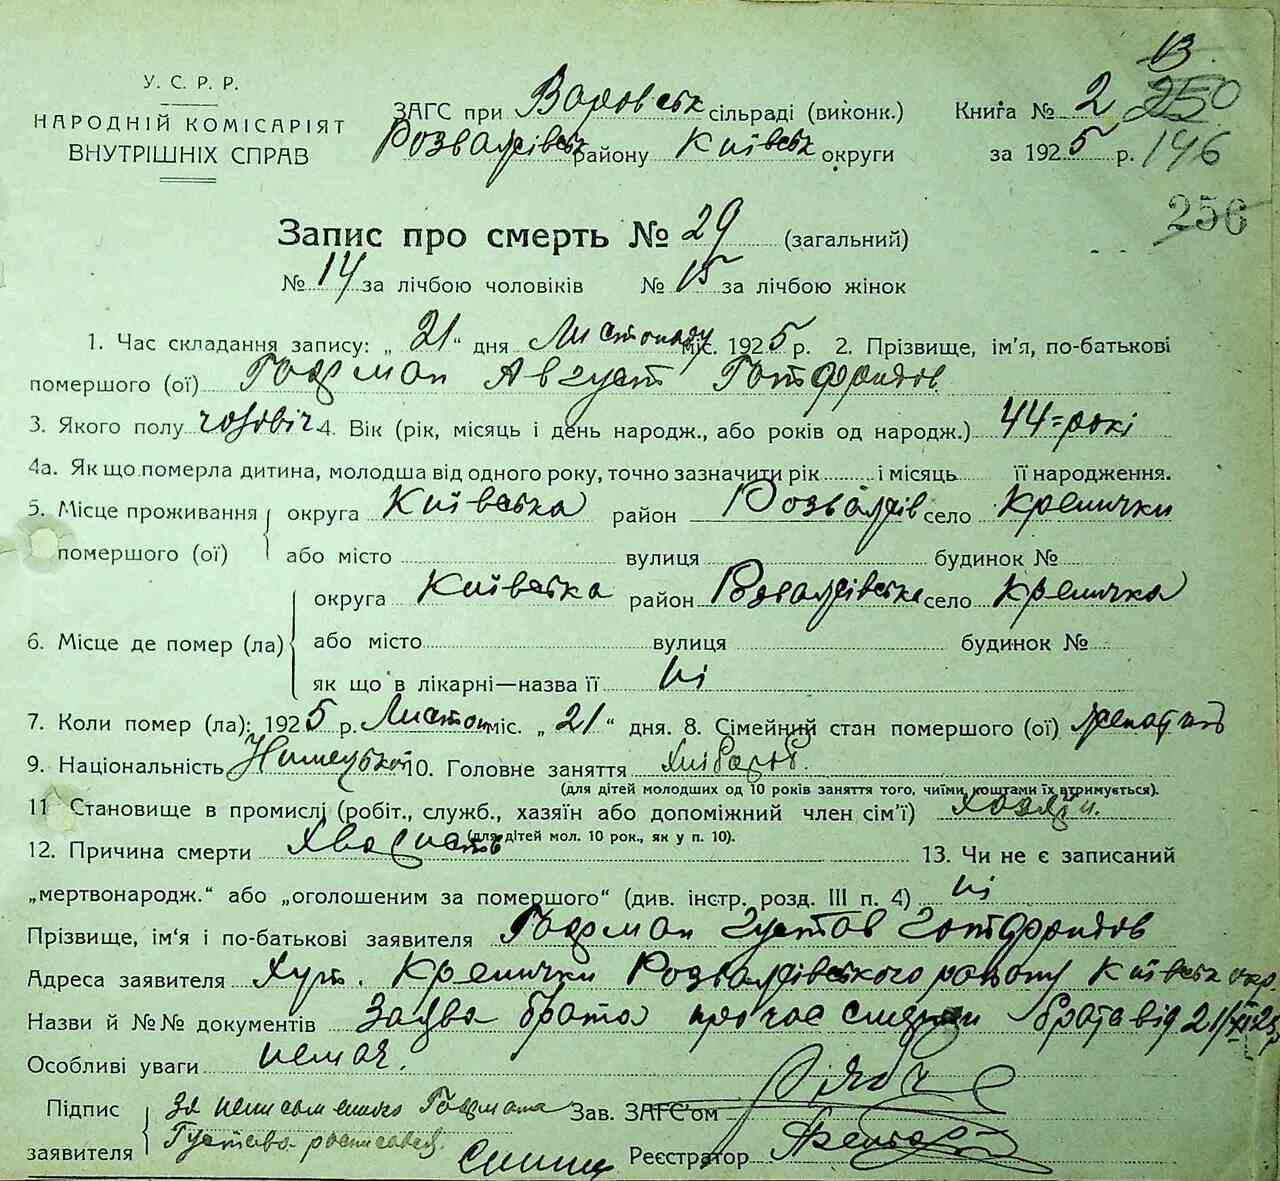 13.
У. С. Р. Р.
НАРОДНІЙ КОМІСАРІЯТ
ВНУТРІШНІХ СПРАВ
ЗАГС при Воровськ сільраді (виконк.)
Розважівськ району Київськ округи
Книга № 2 250
за 1925 р. 146
256
Запис про смерть № 29 (загальний)
№ 14 за лічбою чоловіків № 15 за лічбою жінок
1. Час складання запису: „ 21 “ дня Листопаду міс. 1925 р. 2. Прізвище, ім'я, по-батькові
помершого (ої) Гофман Август Готфридов
3. Якого полу чоловіч 4. Вік (рік, місяць і день народж., або років од народж.) 44=рокі
4а. Як що померла дитина, молодша від одного року, точно зазначити рік і місяць її народження.
5. Місце проживання помершого (ої) округа Київська район Розважів село Кремички
або місто вулиця будинок №
6. Місце де помер (ла) округа Київська район Розважівське село Кремичка
або місто вулиця будинок №
як що в лікарні—назва її Ні
7. Коли помер (ла): 1925 р. Листоп міс. „ 21 “ дня. 8. Сімейний стан помершого (ої)
9. Національність 10. Головне заняття Хлібороб.
(для дітей молодших од 10 років заняття того, чиїми коштами їх втримується).
11 Становище в промислі (робіт., служб., хазяїн або допоміжний член сім'ї) хозяїн.
(для дітей мол. 10 рок., як у п. 10).
12. Причина смерти 13. Чи не є записаний
„мертвонародж.“ або „оголошеним за помершого“ (див. інстр. розд. III п. 4) ні
Прізвище, ім'я і по-батькові заявителя Гофман Густав Готфридов
Адреса заявителя Хут. Кремички Розважівського району Київськ окр.
Назви й №№ документів Заява брата про час смерти брата від 21/XI 25р
Особливі уваги немає.
Підпис заявителя За неписьменного Гофмана
Густава росписався
Зав. ЗАГС'ом
Реєстратор